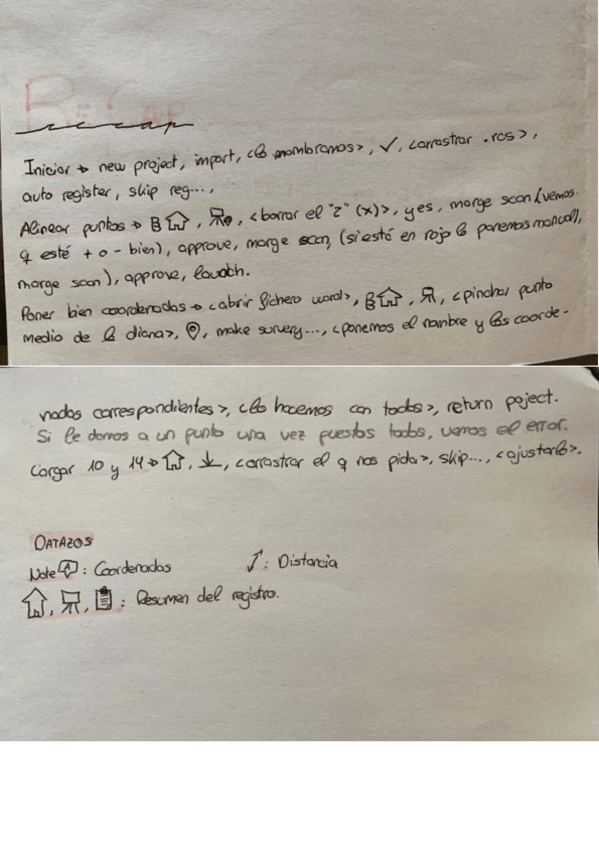 ReCap
recap
Iniciar → new project, import, <lo nombramos>, ✓, <arrastrar .rcs>,
auto register, skip reg...,
Alinear puntos → , <borrar el "2" (x)>, yes, marge scan (vemos
q esté + o - bien), approve, marge scan, (si está en rojo lo ponemos manual),
marge scan), approve, lauch.
Poner bien coordenadas → <abrir fichero word>, , <pinchar punto
medio de la diana>, make survery..., <ponemos el nombre y las coorde-
nadas correspondientes>, <lo hacemos con todos>, return poject.
Si le damos a un punto una vez puestos todos, vemos el error.
Cargar 10 y 14 → , <arrastrar el q nos pida>, skip..., <ajustarlo>.
DATAZOS
Note : Coordenadas : Distancia
: Resumen del registro.